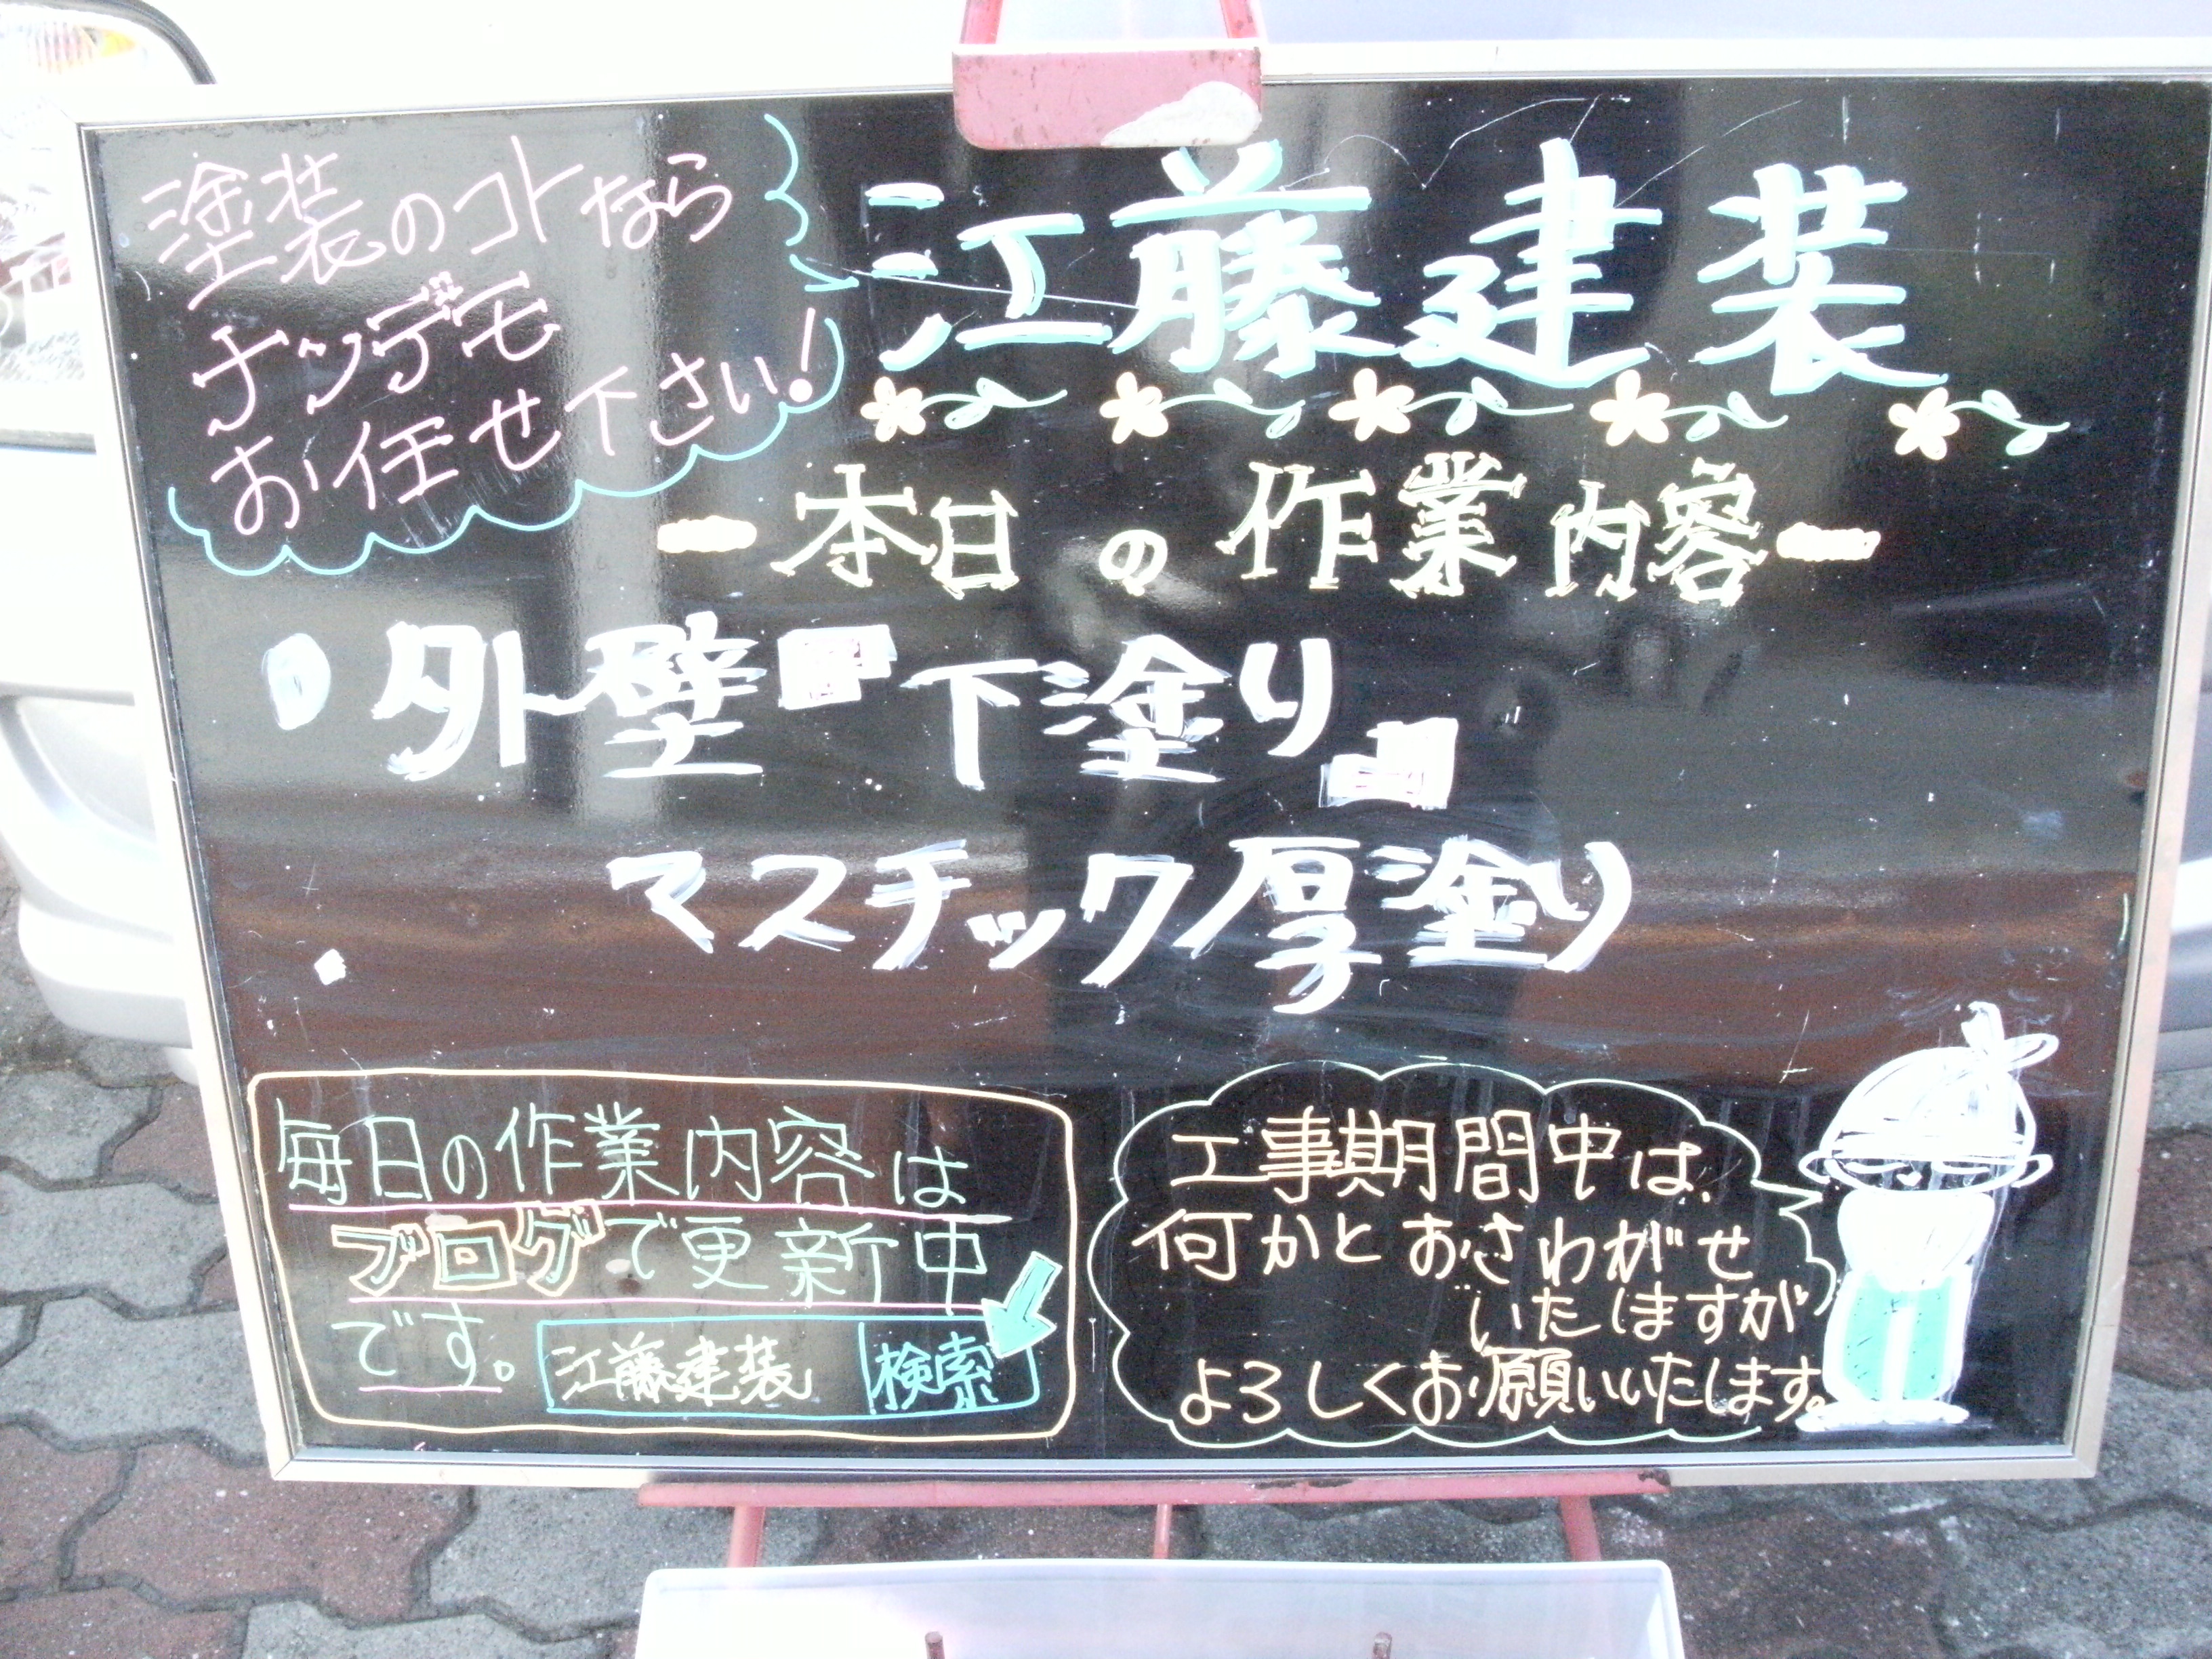 塗装のコトなら
ナンデモ
お任せ下さい!
江藤建装
ー本日の作業内容ー
外壁 下塗り
マスチック厚塗り
毎日の作業内容は
ブログで更新中
です。
江藤建装 検索
工事期間中は、
何かとおさわがせ
いたしますが
よろしくお願いいたします。